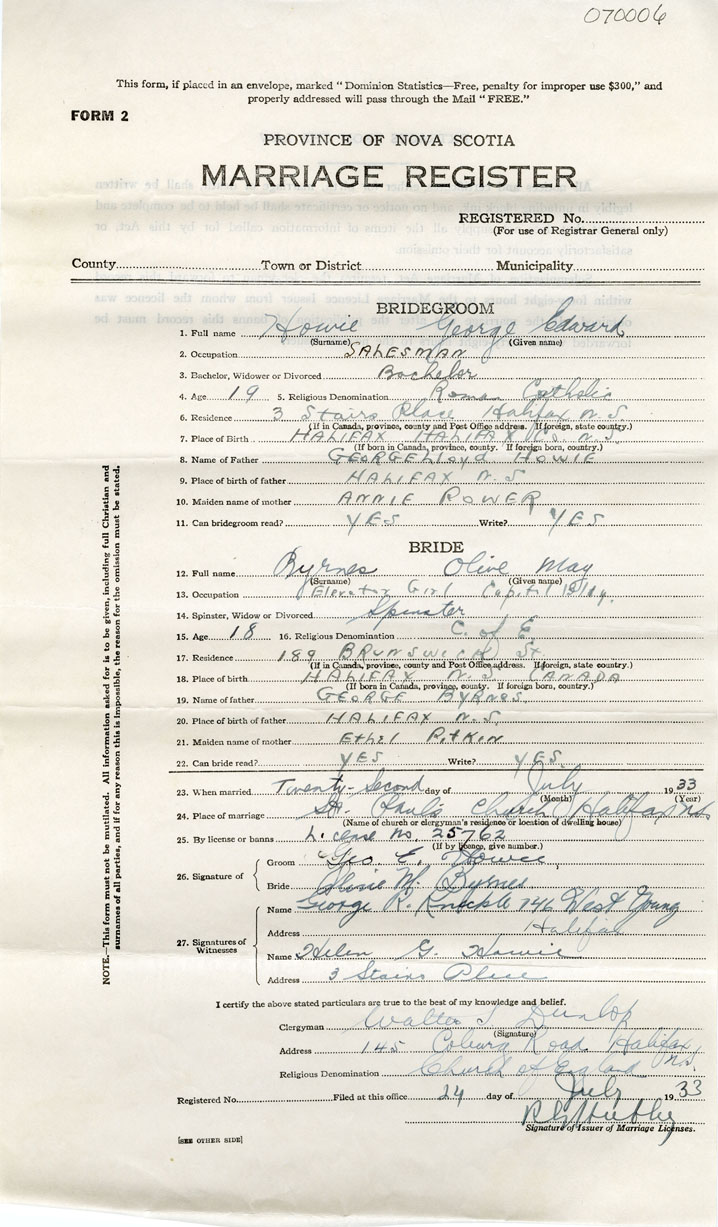 070006
This form, if placed in an envelope, marked "Dominion Statistics—Free, penalty for improper use $300," and
properly addressed will pass through the Mail "FREE."
FORM 2
PROVINCE OF NOVA SCOTIA
MARRIAGE REGISTER
REGISTERED No.
(For use of Registrar General only)
County Town or District Municipality
BRIDEGROOM
1. Full name Howie George Edward
(Surname) (Given name)
2. Occupation SALESMAN
3. Bachelor, Widower or Divorced Bachelor
4. Age 19 5. Religious Denomination Roman Catholic
6. Residence 3 Stairs Place Halifax N.S.
(If in Canada, province, county and Post Office address. If foreign, state country.)
7. Place of Birth HALIFAX HALIFAX Co. N.S.
(If born in Canada, province, county. If foreign born, country.)
8. Name of Father GEORGE Lloyd HOWIE
9. Place of birth of father HALIFAX N.S
10. Maiden name of mother ANNIE POWER
11. Can bridegroom read? YES Write? YES
BRIDE
12. Full name Byrnes Olive May
(Surname) (Given name)
13. Occupation Elevator Girl Capitol Bldg.
14. Spinster, Widow or Divorced Spinster
15. Age 18 16. Religious Denomination C. of E.
17. Residence 189 BRUNSWICK St.
(If in Canada, province, county and Post Office address. If foreign, state country.)
18. Place of birth HALIFAX N.S. CANADA
(If born in Canada, province, county. If foreign born, country.)
19. Name of father GEORGE BYRNES
20. Place of birth of father HALIFAX N.S.
21. Maiden name of mother Ethel Pitkin
22. Can bride read? YES Write? YES.
23. When married Twenty-Second day of July 1933
(Month) (Year)
24. Place of marriage St. Paul's Church, Halifax, N.S.
(Name of church or clergyman's residence or location of dwelling house)
25. By license or banns License No. 25762
(If by licence, give number.)
26. Signature of Groom Geo. E. Howie
Bride Olive M. Byrnes
27. Signatures of Witnesses Name George R. 746 West Young
Address Halifax
Name Helen G. Howie
Address 3 Stairs Place
I certify the above stated particulars are true to the best of my knowledge and belief.
Clergyman Walter S Dunlop
(Signature)
Address 145 Coburg Road, Halifax, N.S.
Religious Denomination Church of England
Registered No. Filed at this office 24 day of July 1933
Signature of Issuer of Marriage Licenses.
[SEE OTHER SIDE]
NOTE.—This form must not be mutilated. All information asked for is to be given, including full Christian and
surnames of all parties, and if for any reason this is impossible, the reason for the omission must be stated.